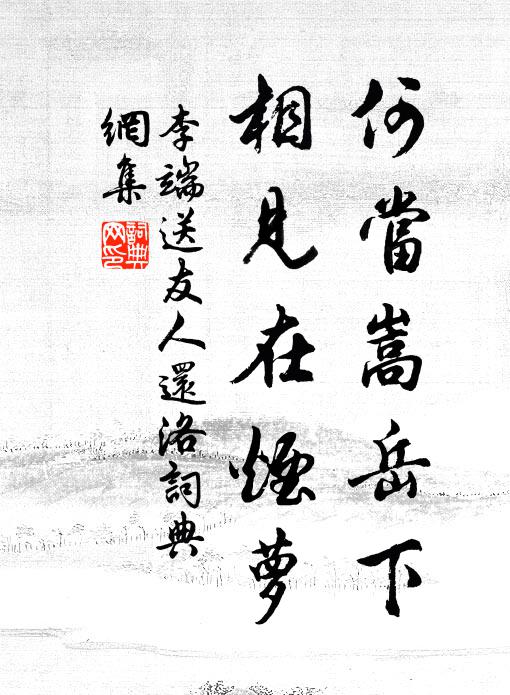 何當嵩岳下
相見在煙萝
李端送友人還洛詞典
網集
詞典
网印